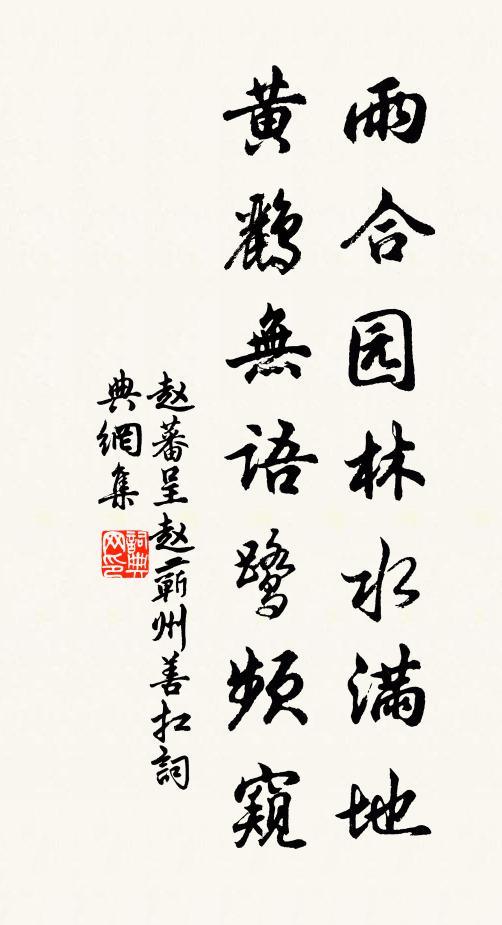 雨合园林水满地
黄鹂無语鹭頻窺
赵蕃呈赵蕲州善扛詞
典網集
詞典网印